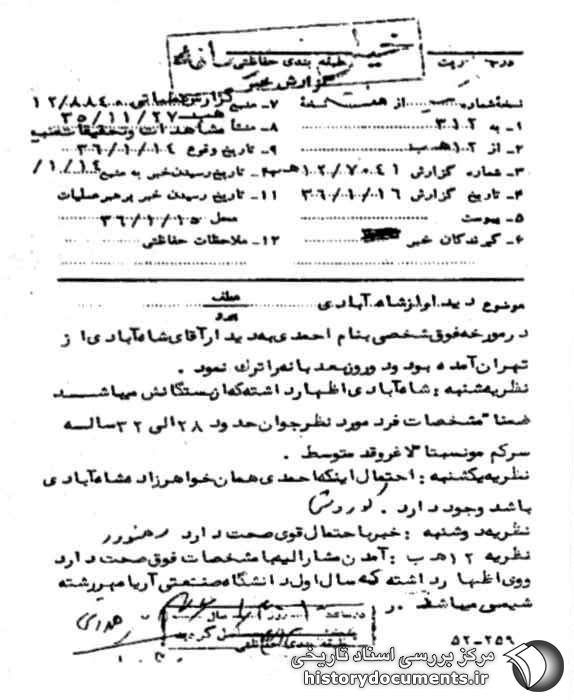 خیلی
طبقه بندی حفاظتی
گزارش خبر
نسخه شماره از نسخه
۱ـ به ۳۱۲
۲ـ از ۱۲هـ ب
۳ـ شماره گزارش ۱۲/۷۰۴۱هـ ب
۴ـ تاریخ گزارش ۳۶/۱۰/۱۶
۵ـ پیوست
۶ـ گیرندگان خبر
۷ـ منبع گزارش عملیاتی ۱۲/۸۸۴۰
هـ ب ۳۵/۱۱/۲۷
۸ـ منشأ مشاهدات و تحقیقات منبع
۹ـ تاریخ وقوع ۳۶/۱۰/۱۴
تاریخ رسیدن خبر به منبع
۱۱ـ تاریخ رسیدن خبر به رهبر عملیات
محل ۳۶/۱۰/۱۵
۱۲ـ ملاحظات حفاظتی
موضوع دیدار از شاه آبادی
عطف
پیرو
در مورخه فوق شخصی بنام احمدی به دیدار آقای شاه آبادی از
تهران آمده بود و دو روز بعد بانه را ترک نمود .
نظریه شنبه : شاه آبادی اظهار داشته که از بستگانش میباشد
ضمنا" مشخصات فرد مورد نظر جوان حدود ۲۸ الی ۳۲ ساله
سر کم مو نسبتا" لاغر و قد متوسط .
نظریه یکشنبه : احتمال اینکه احمدی همان خواهرزاده شاه آبادی
باشد وجود دارد . کوروش
نظریه دوشنبه : خبر باحتمال قوی صحت دارد رهنورد
نظریه ۱۲ هـ ب : آمدن مشارالیه با مشخصات فوق صحت دارد
و وی اظهار داشته که سال اول دانشگاه صنعتی آریامهر رشته
شیمی میباشد .
در ساعت روز سال
طبقه بندی حفاظتی
۵۲-۲۵۹
مرکز بررسی اسناد تاریخی
historydocuments.ir